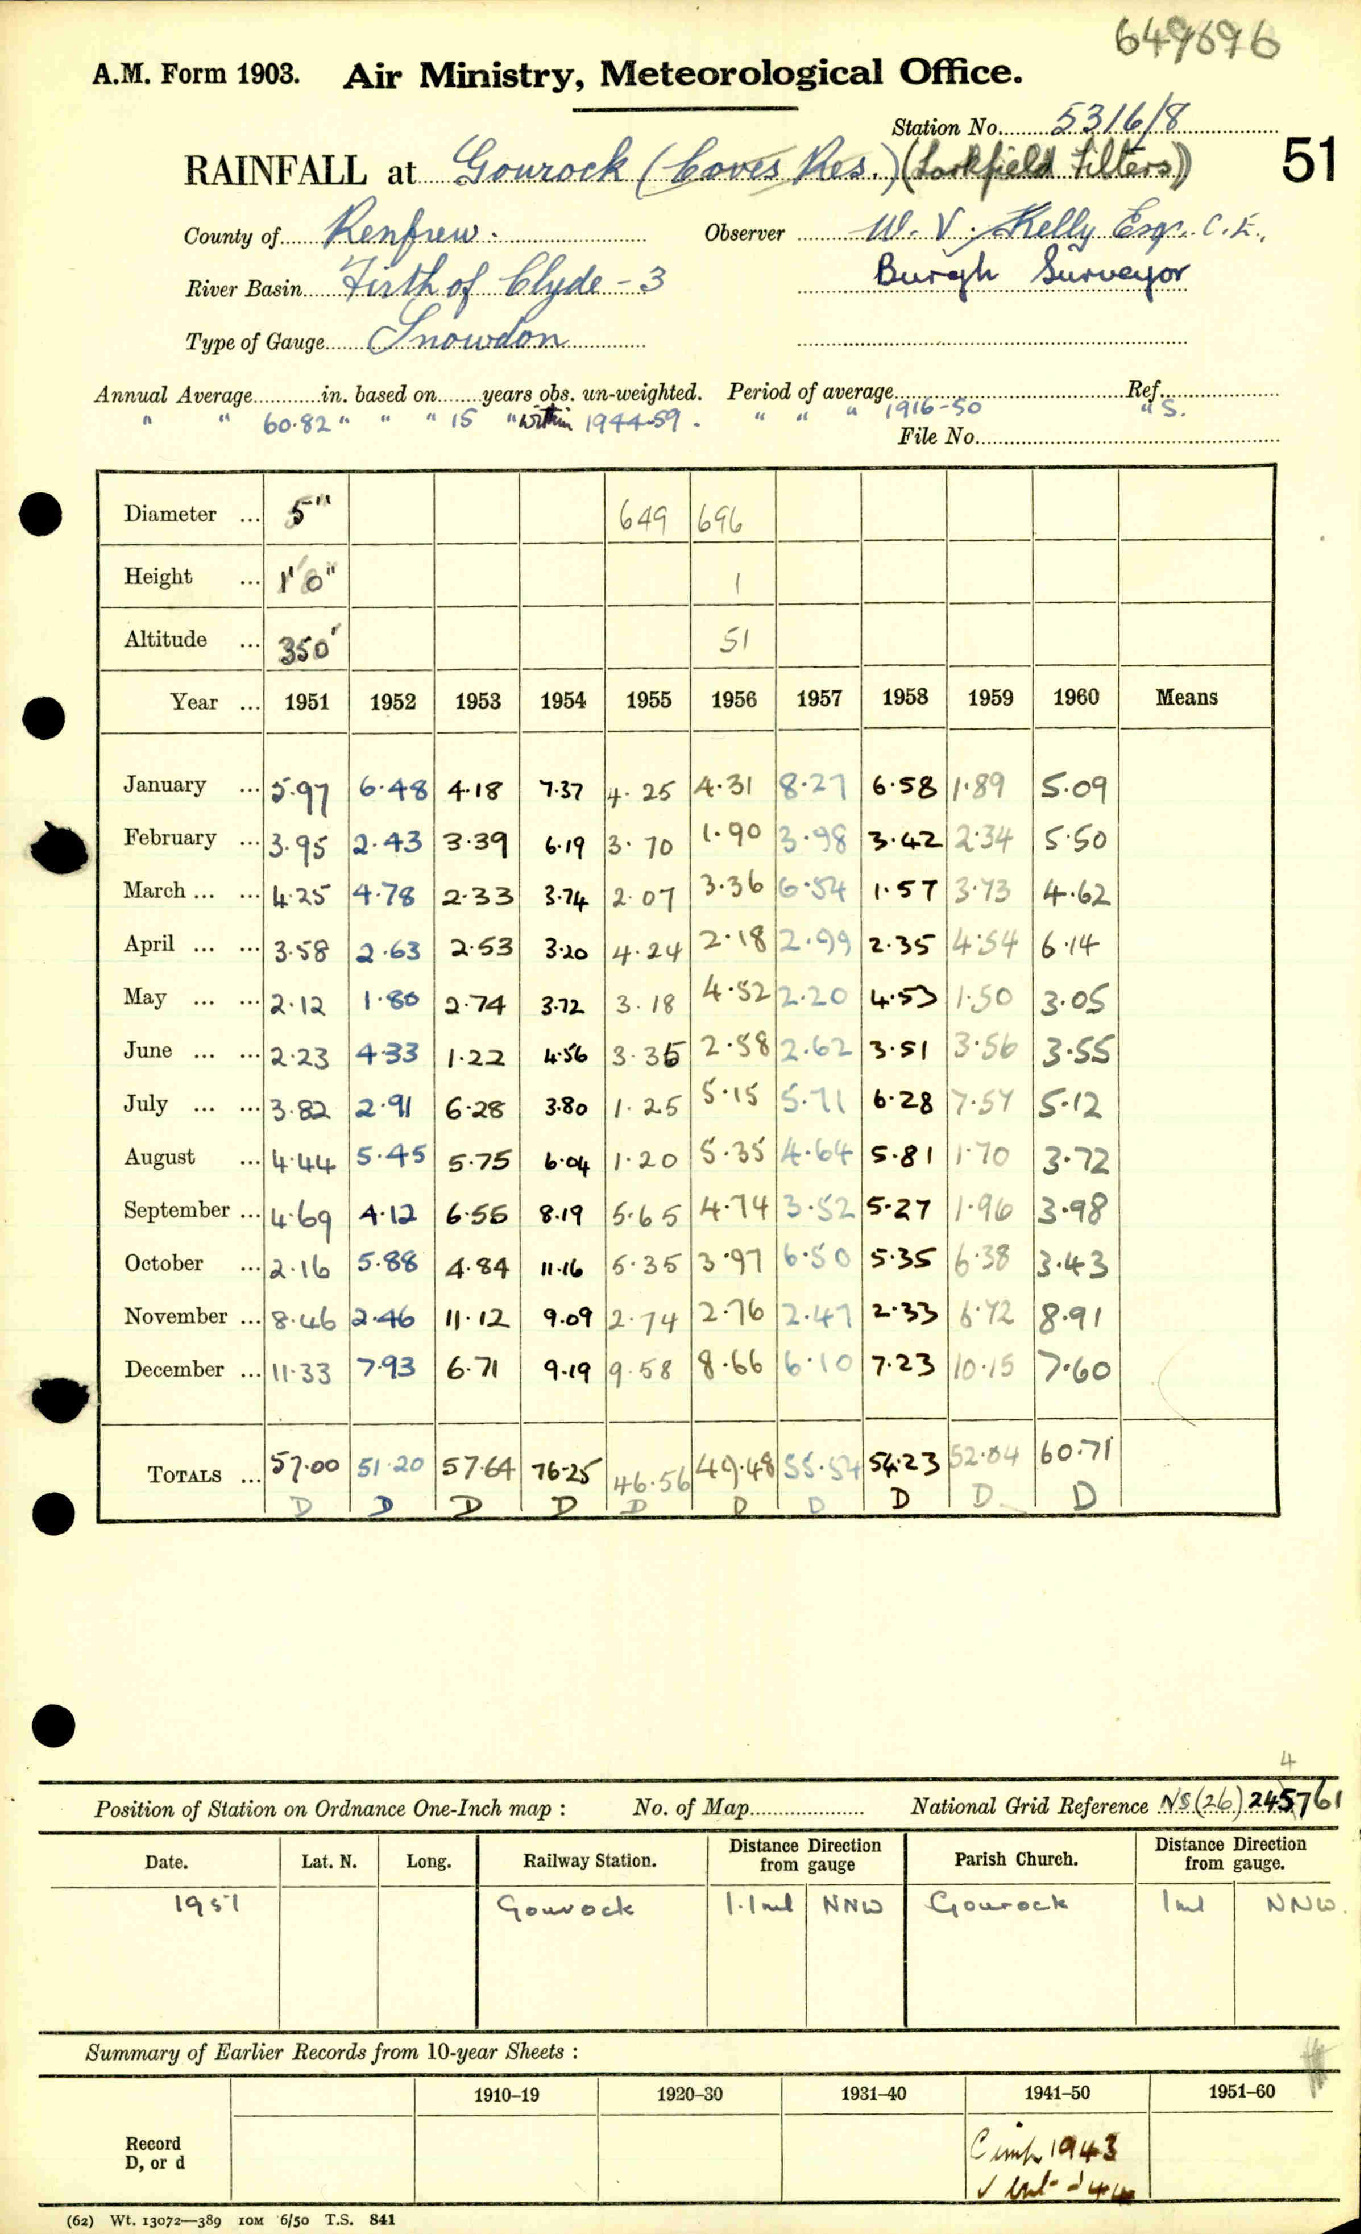 649696
A.M. Form 1903. Air Ministry, Meteorological Office.
Station No. 5316/8
RAINFALL at Gourock (Coves Res.) (Larkfield Filters) 51
County of Renfrew. Observer W. V. Kelly Esqr. C.E.,
River Basin Firth of Clyde - 3 Burgh Surveyor
Type of Gauge Snowdon
Annual Average in. based on years obs. un-weighted. Period of average Ref.
" " 60.82 " " " 15 " within 1944-59. " " " 1916-50 " S.
File No.
Diameter ... 5" 649 696
Height ... 1' 0" 1
Altitude ... 350' 51
Year ... 1951 1952 1953 1954 1955 1956 1957 1958 1959 1960 Means
January ... 5.97 6.48 4.18 7.37 4.25 4.31 8.27 6.58 1.89 5.09
February ... 3.95 2.43 3.39 6.19 3.70 1.90 3.98 3.42 2.34 5.50
March ... ... 4.25 4.78 2.33 3.74 2.07 3.36 6.54 1.57 3.73 4.62
April ... ... 3.58 2.63 2.53 3.20 4.24 2.18 2.99 2.35 4.54 6.14
May ... ... 2.12 1.80 2.74 3.72 3.18 4.52 2.20 4.53 1.50 3.05
June ... ... 2.23 4.33 1.22 4.56 3.35 2.58 2.62 3.51 3.56 3.55
July ... ... 3.82 2.91 6.28 3.80 1.25 5.15 5.71 6.28 7.57 5.12
August ... 4.44 5.45 5.75 6.04 1.20 5.35 4.64 5.81 1.70 3.72
September ... 4.69 4.12 6.55 8.19 5.65 4.74 3.52 5.27 1.96 3.98
October ... 2.16 5.88 4.84 11.16 5.35 3.97 6.50 5.35 6.38 3.43
November ... 8.46 2.46 11.12 9.09 2.74 2.76 2.47 2.33 6.72 8.91
December ... 11.33 7.93 6.71 9.19 9.58 8.66 6.10 7.23 10.15 7.60
TOTALS ... 57.00 51.20 57.64 76.25 46.56 49.48 55.54 54.23 52.04 60.71
D D D D D D D D D D
4
Position of Station on Ordnance One-Inch map : No. of Map National Grid Reference NS (26) 245761
Date. Lat. N. Long. Railway Station. Distance from Direction gauge Parish Church. Distance from Direction gauge.
1951 Gourock 1.1 ml NNW Gourock 1 ml NNW.
Summary of Earlier Records from 10-year Sheets :
1910–19 1920–30 1931–40 1941–50 1951–60
Record
D, or d
1943
(62) Wt. 13072—389 10M 6/50 T.S. 841